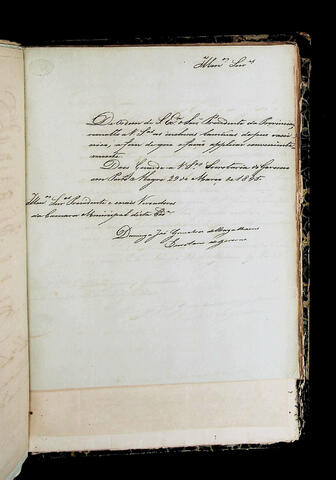 Illmos Snres
De ordem de S. Exa. o Snr. Presidente da Provincia,
remetto a V. Sas. as inclusas laminas de pus vacci
nico, a fim de que o fação applicar convenientemente
mente.
Deos Guarde a V. Sas. Secretaria do Governo
em Porto Alegre 29 de Março de 1845.
Illmos Snres Presidente e mais Vereadores
da Camara Municipal desta Cide.
Domingos José Gonçalves de Magalhaens
Secretario do Governo